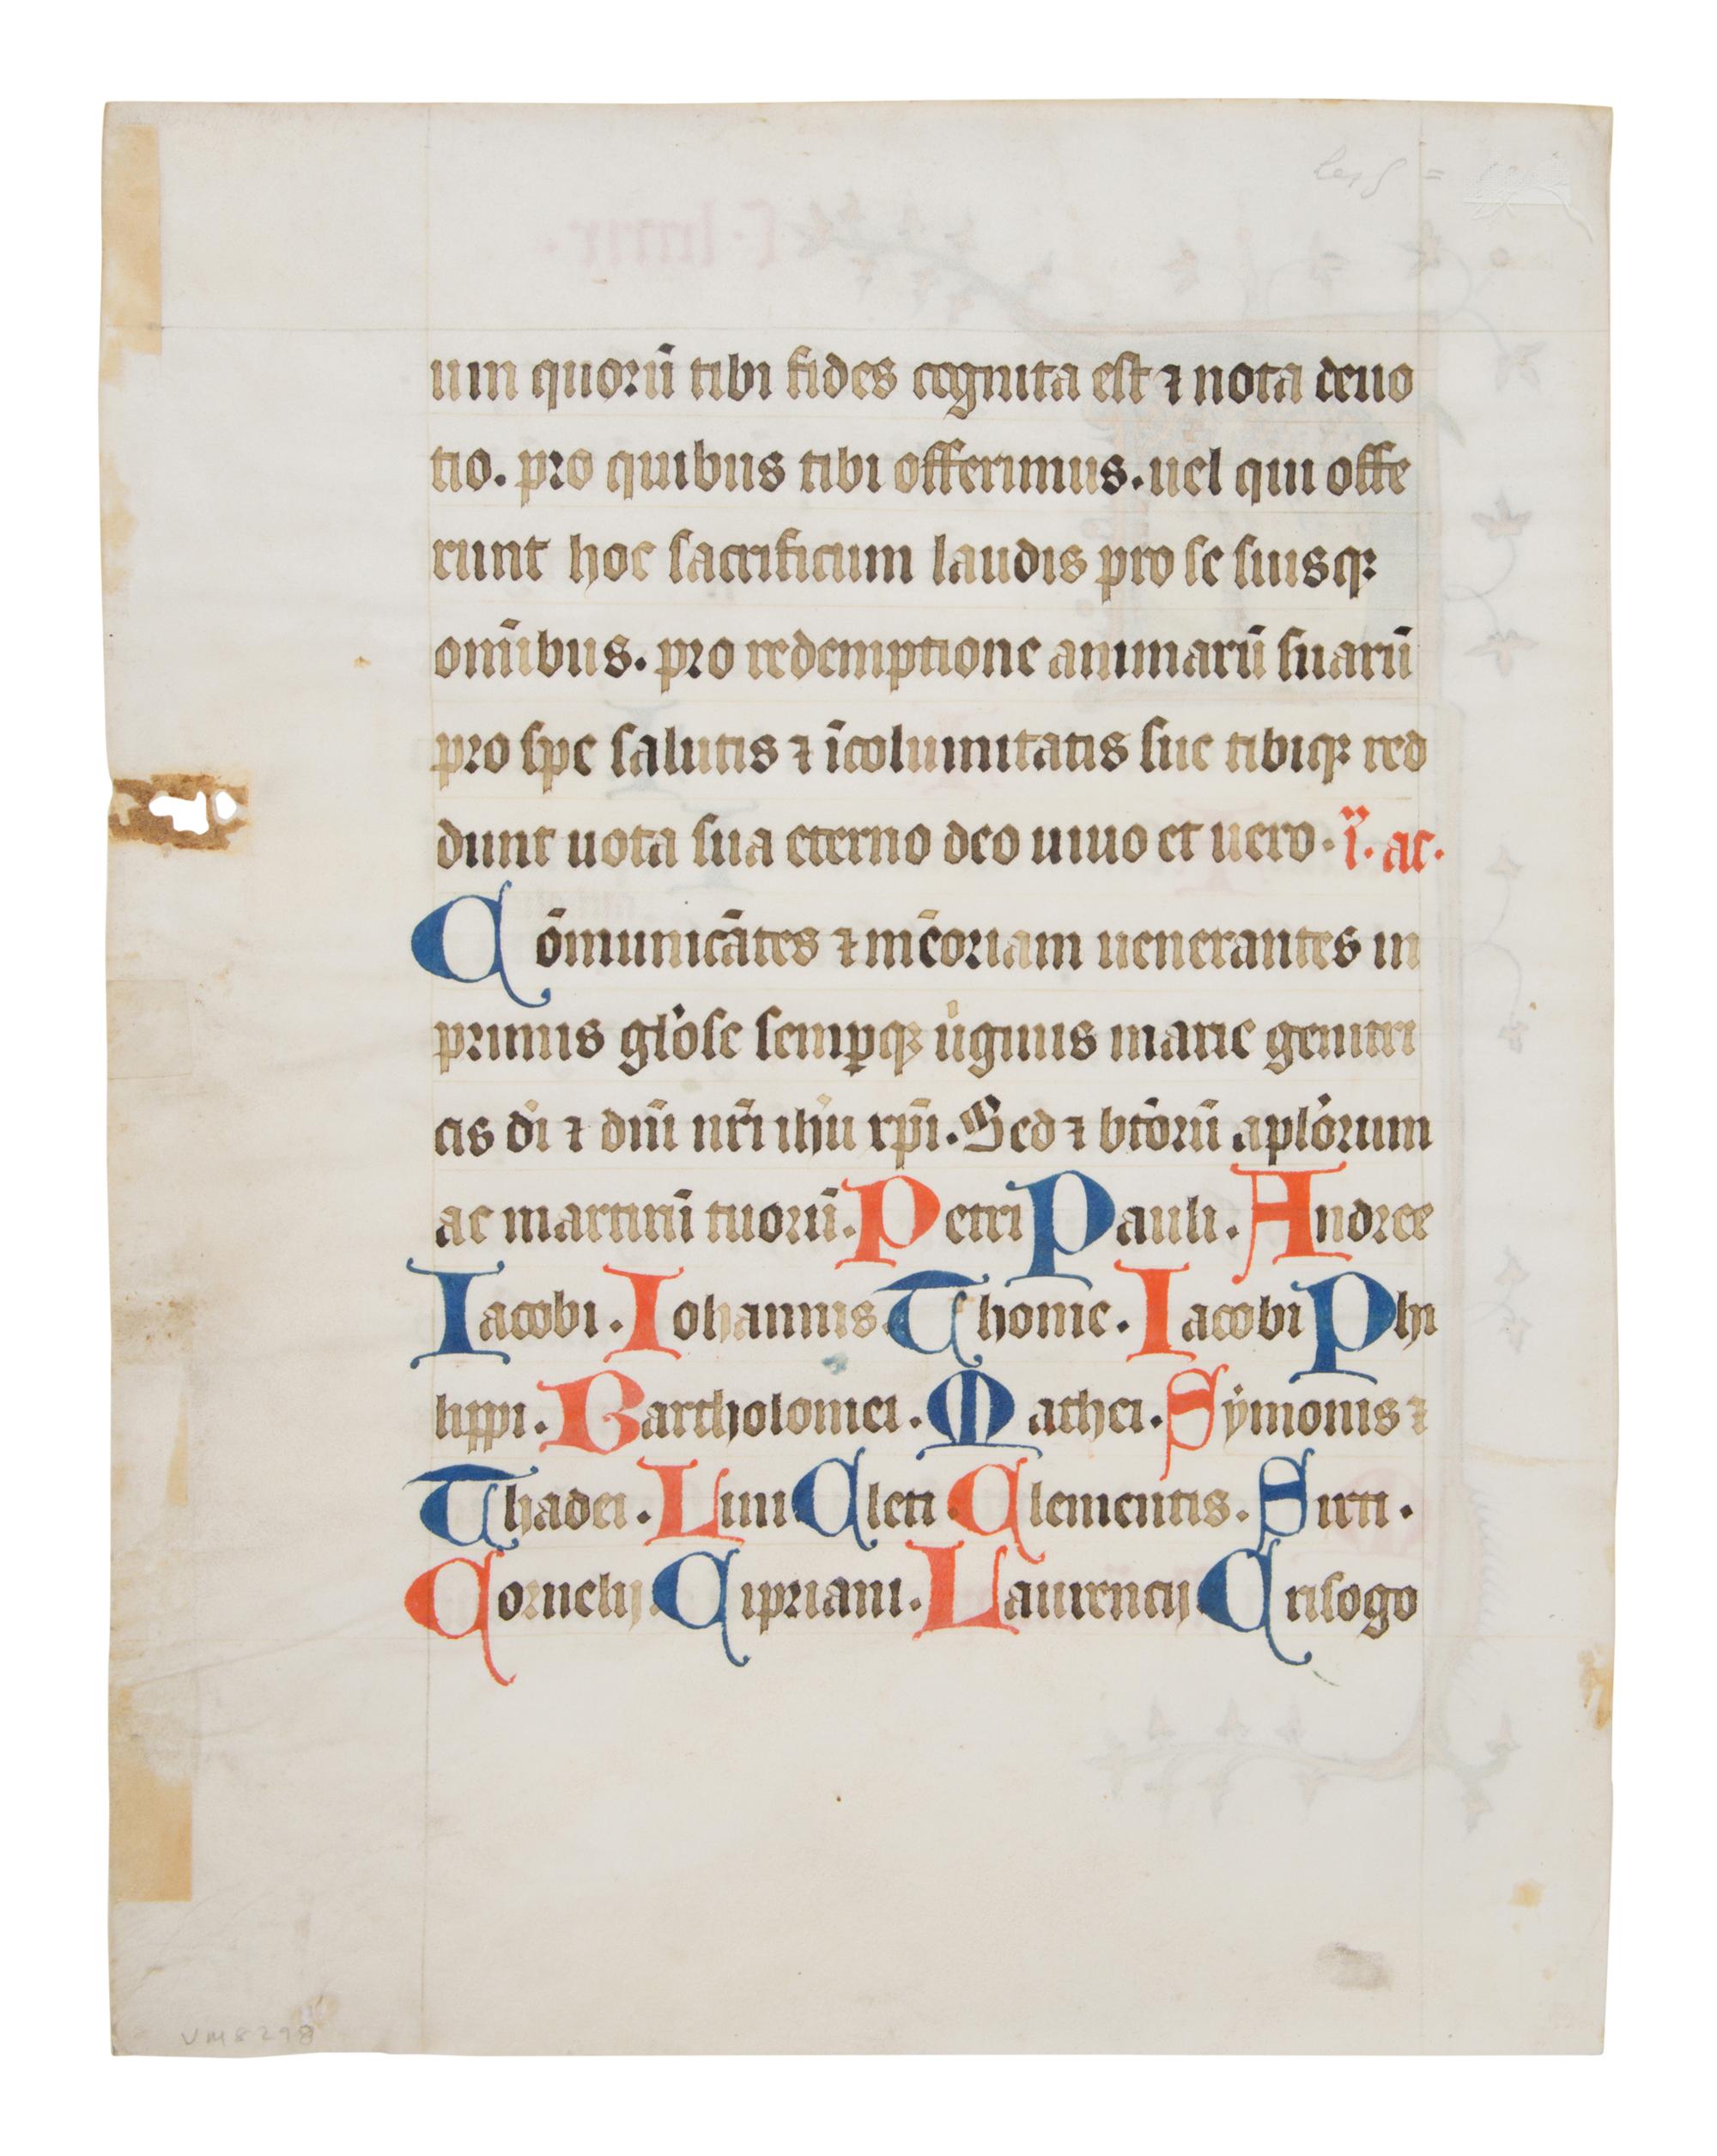 um quorū tibi fides cognita est ⁊ nota deuo
tio. pro quibus tibi offerimus. uel qui offe
runt hoc sacrificium laudis pro se suisqꝫ
om̄ibus. pro redemptione animarū suarū
pro spe salutis ⁊ īcolumitatis sue tibiqꝫ red
dunt uota sua eterno deo uiuo et uero. ac.
Cōmunicātes ⁊ mēoriam uenerantes in
primis glōse semꝑqꝫ uiginis marie genitri
cis di ⁊ dnī nrī ihu xpī. Sed ⁊ btōrū aplōrum
ac martirū tuorū. Petri Pauli. Andree
Iacobi. Iohannis Thome. Iacobi Phi
lippi. Bartholomei. Mathei. Sẏmonis ⁊
Thadei. Lini Cleti Clementis. Sixti.
Cornelij Cipriani. Laurencij Crisogo
VM 8298